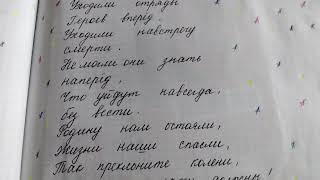 Уходили отряды
Героев вперёд.
Уходили навстречу
смерти.
Не могли они знать
наперёд,
Что уйдут навсегда,
без вести.
Родину нам оставили,
Жизни наши спасли,
Так преклоните колени,